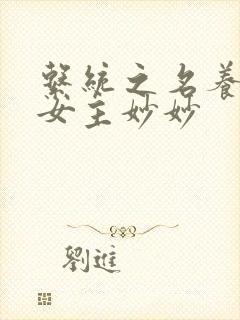 繫統之名養
女主妙妙
劉進